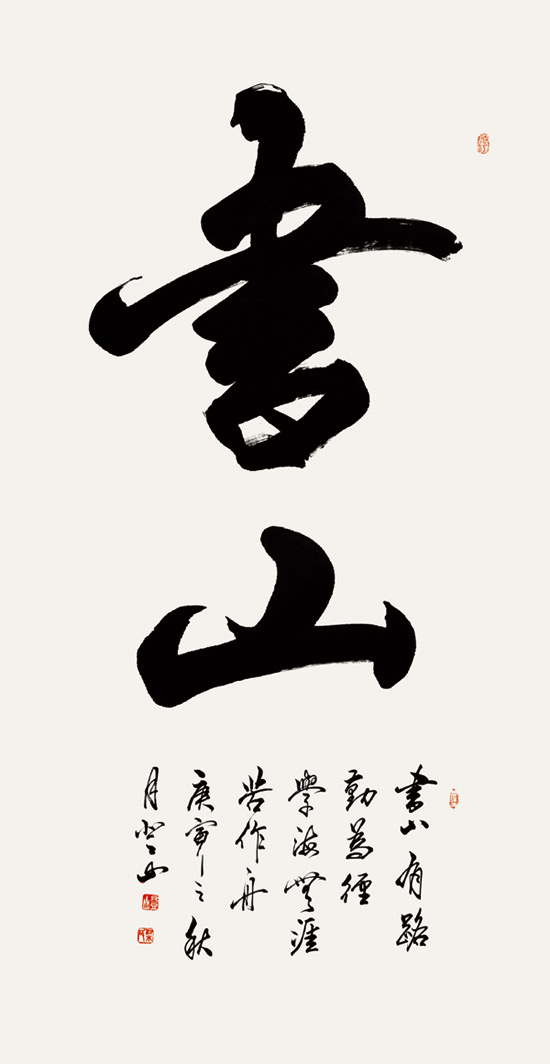 書山
書山有路
勤為徑
學海無涯
苦作舟
庚寅之秋
月登山